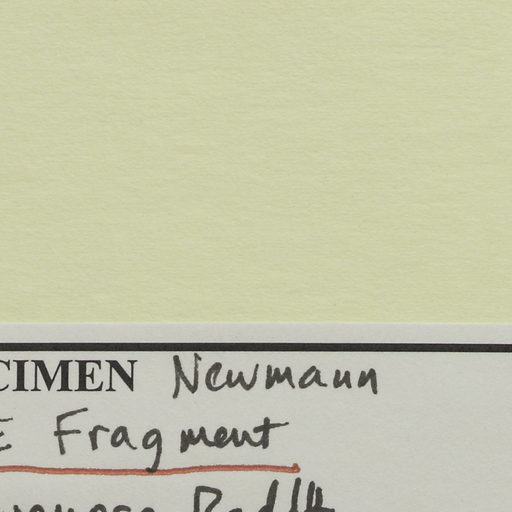 CIMEN Newmann
E Fragment